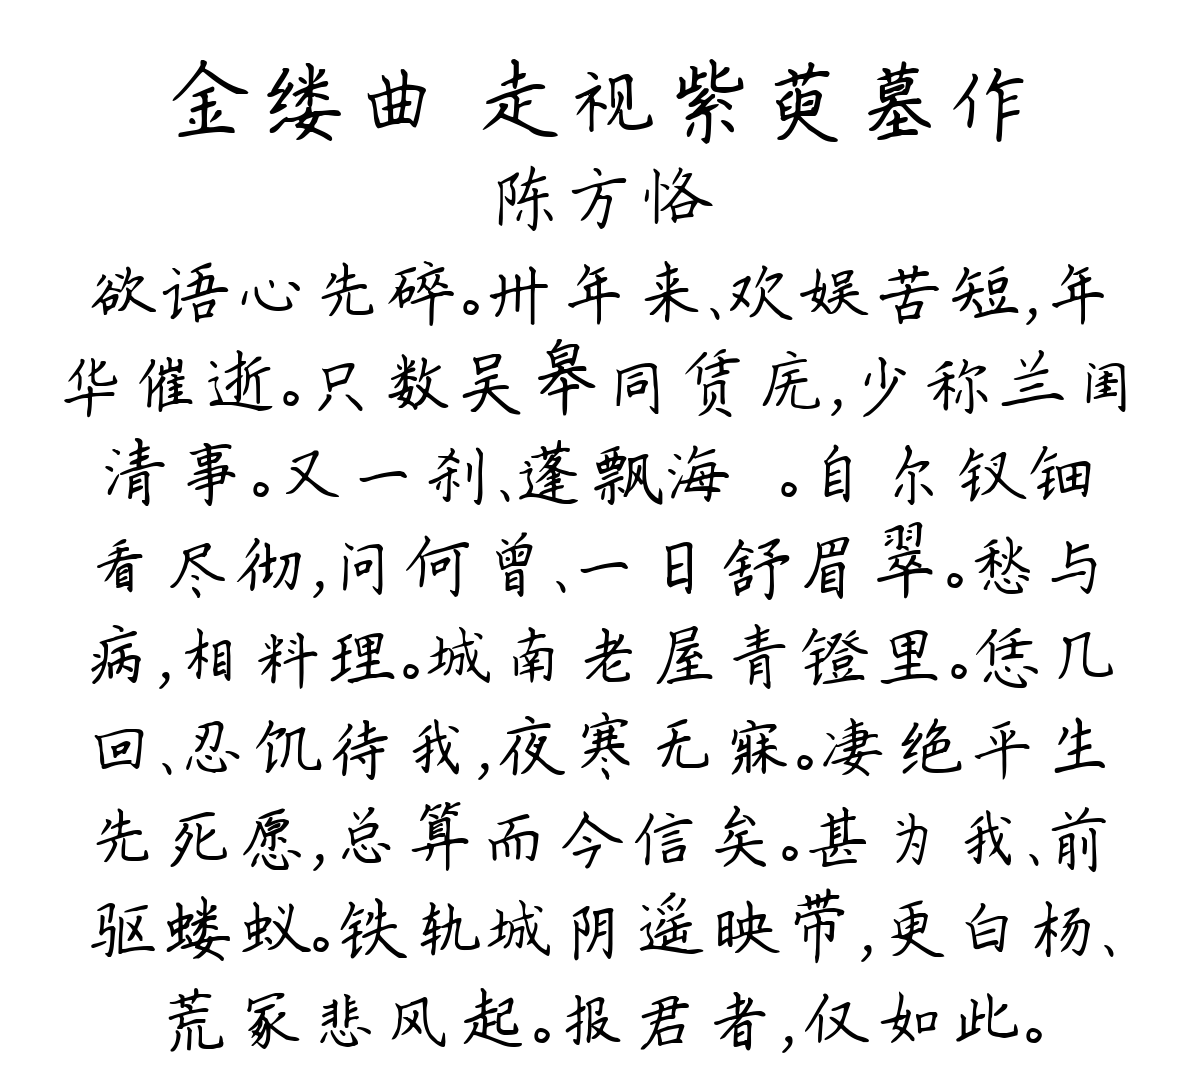 金缕曲 走视紫萸墓作
陈方恪
欲语心先碎。卅年来、欢娱苦短,年
华催逝。只数吴皋同赁庑,少称兰闺
清事。又一刹、蓬飘海 。自尔钗钿
看尽彻,问何曾、一日舒眉翠。愁与
病,相料理。城南老屋青镫里。恁几
回、忍饥待我,夜寒无寐。凄绝平生
先死愿,总算而今信矣。甚为我、前
驱蝼蚁。铁轨城阴遥映带,更白杨、
荒冢悲风起。报君者,仅如此。